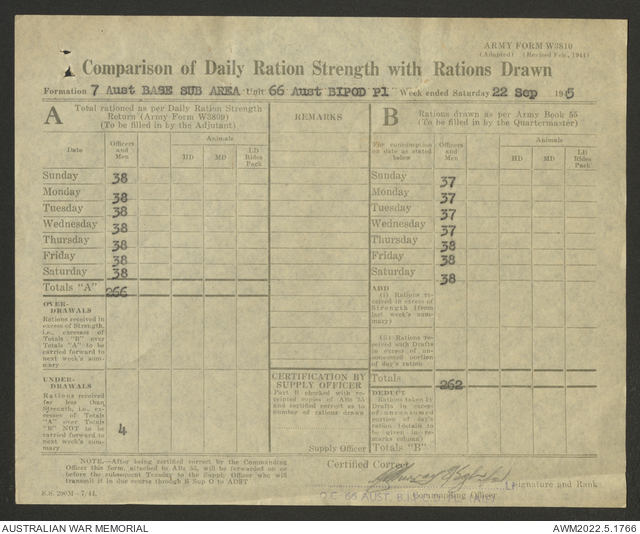 ARMY FORM W3810
(Adapted) (Revised Feb., 1941)
Comparison of Daily Ration Strength with Rations Drawn
Formation 7 Aust BASE SUB AREA Unit 66 Aust BIPOD Pl Week ended Saturday 22 Sep 1945
A Total rationed as per Daily Ration Strength
Return (Army Form W3809)
(To be filled in by the Adjutant)
Date
Officers and Men
Animals
HD MD LD Rides Pack
Sunday 38
Monday 38
Tuesday 38
Wednesday 38
Thursday 38
Friday 38
Saturday 38
Totals "A" 266
OVER-
DRAWALS
Rations received in
excess of Strength,
i.e., excesses of
Totals "B" over
Totals "A" to be
carried forward to
next week's sum-
mary
UNDER-
DRAWALS
Rations received
for less than
Strength, i.e., ex-
cesses of Totals
"A" over Totals
"B" NOT to be
carried forward to
next week's sum-
mary
4
REMARKS
CERTIFICATION BY
SUPPLY OFFICER
Part B checked with re-
ceipted copies of Abs 55
and certified correct as to
number of rations drawn
Supply Officer
B Rations drawn as per Army Book 55
(To be filled in by the Quartermaster)
For consumption
on date as stated
below
Officers and Men
Animals
HD MD LD Rides Pack
Sunday 37
Monday 37
Tuesday 37
Wednesday 37
Thursday 38
Friday 38
Saturday 38
ADD
(i) Rations re-
ceived in excess of
Strength (from
last week's sum-
mary)
(ii) Rations re-
ceived with Drafts
in excess of un-
consumed portion
of day's ration
Totals 262
DEDUCT
Rations taken by
Drafts in excess
of unconsumed
portion of day's
ration (details to
be given in re-
marks column)
Totals "B"
NOTE.—After being certified correct by the Commanding
Officer this form, attached to Abs 55, will be forwarded on or
before the subsequent Tuesday to the Supply Officer who will
transmit it in due course through S Sup O to ADST
Certified Correct
Signature and Rank
Commanding Officer
66 AUST.
S.S. 290M—7/44.
AUSTRALIAN WAR MEMORIAL
AWM2022.5.1766